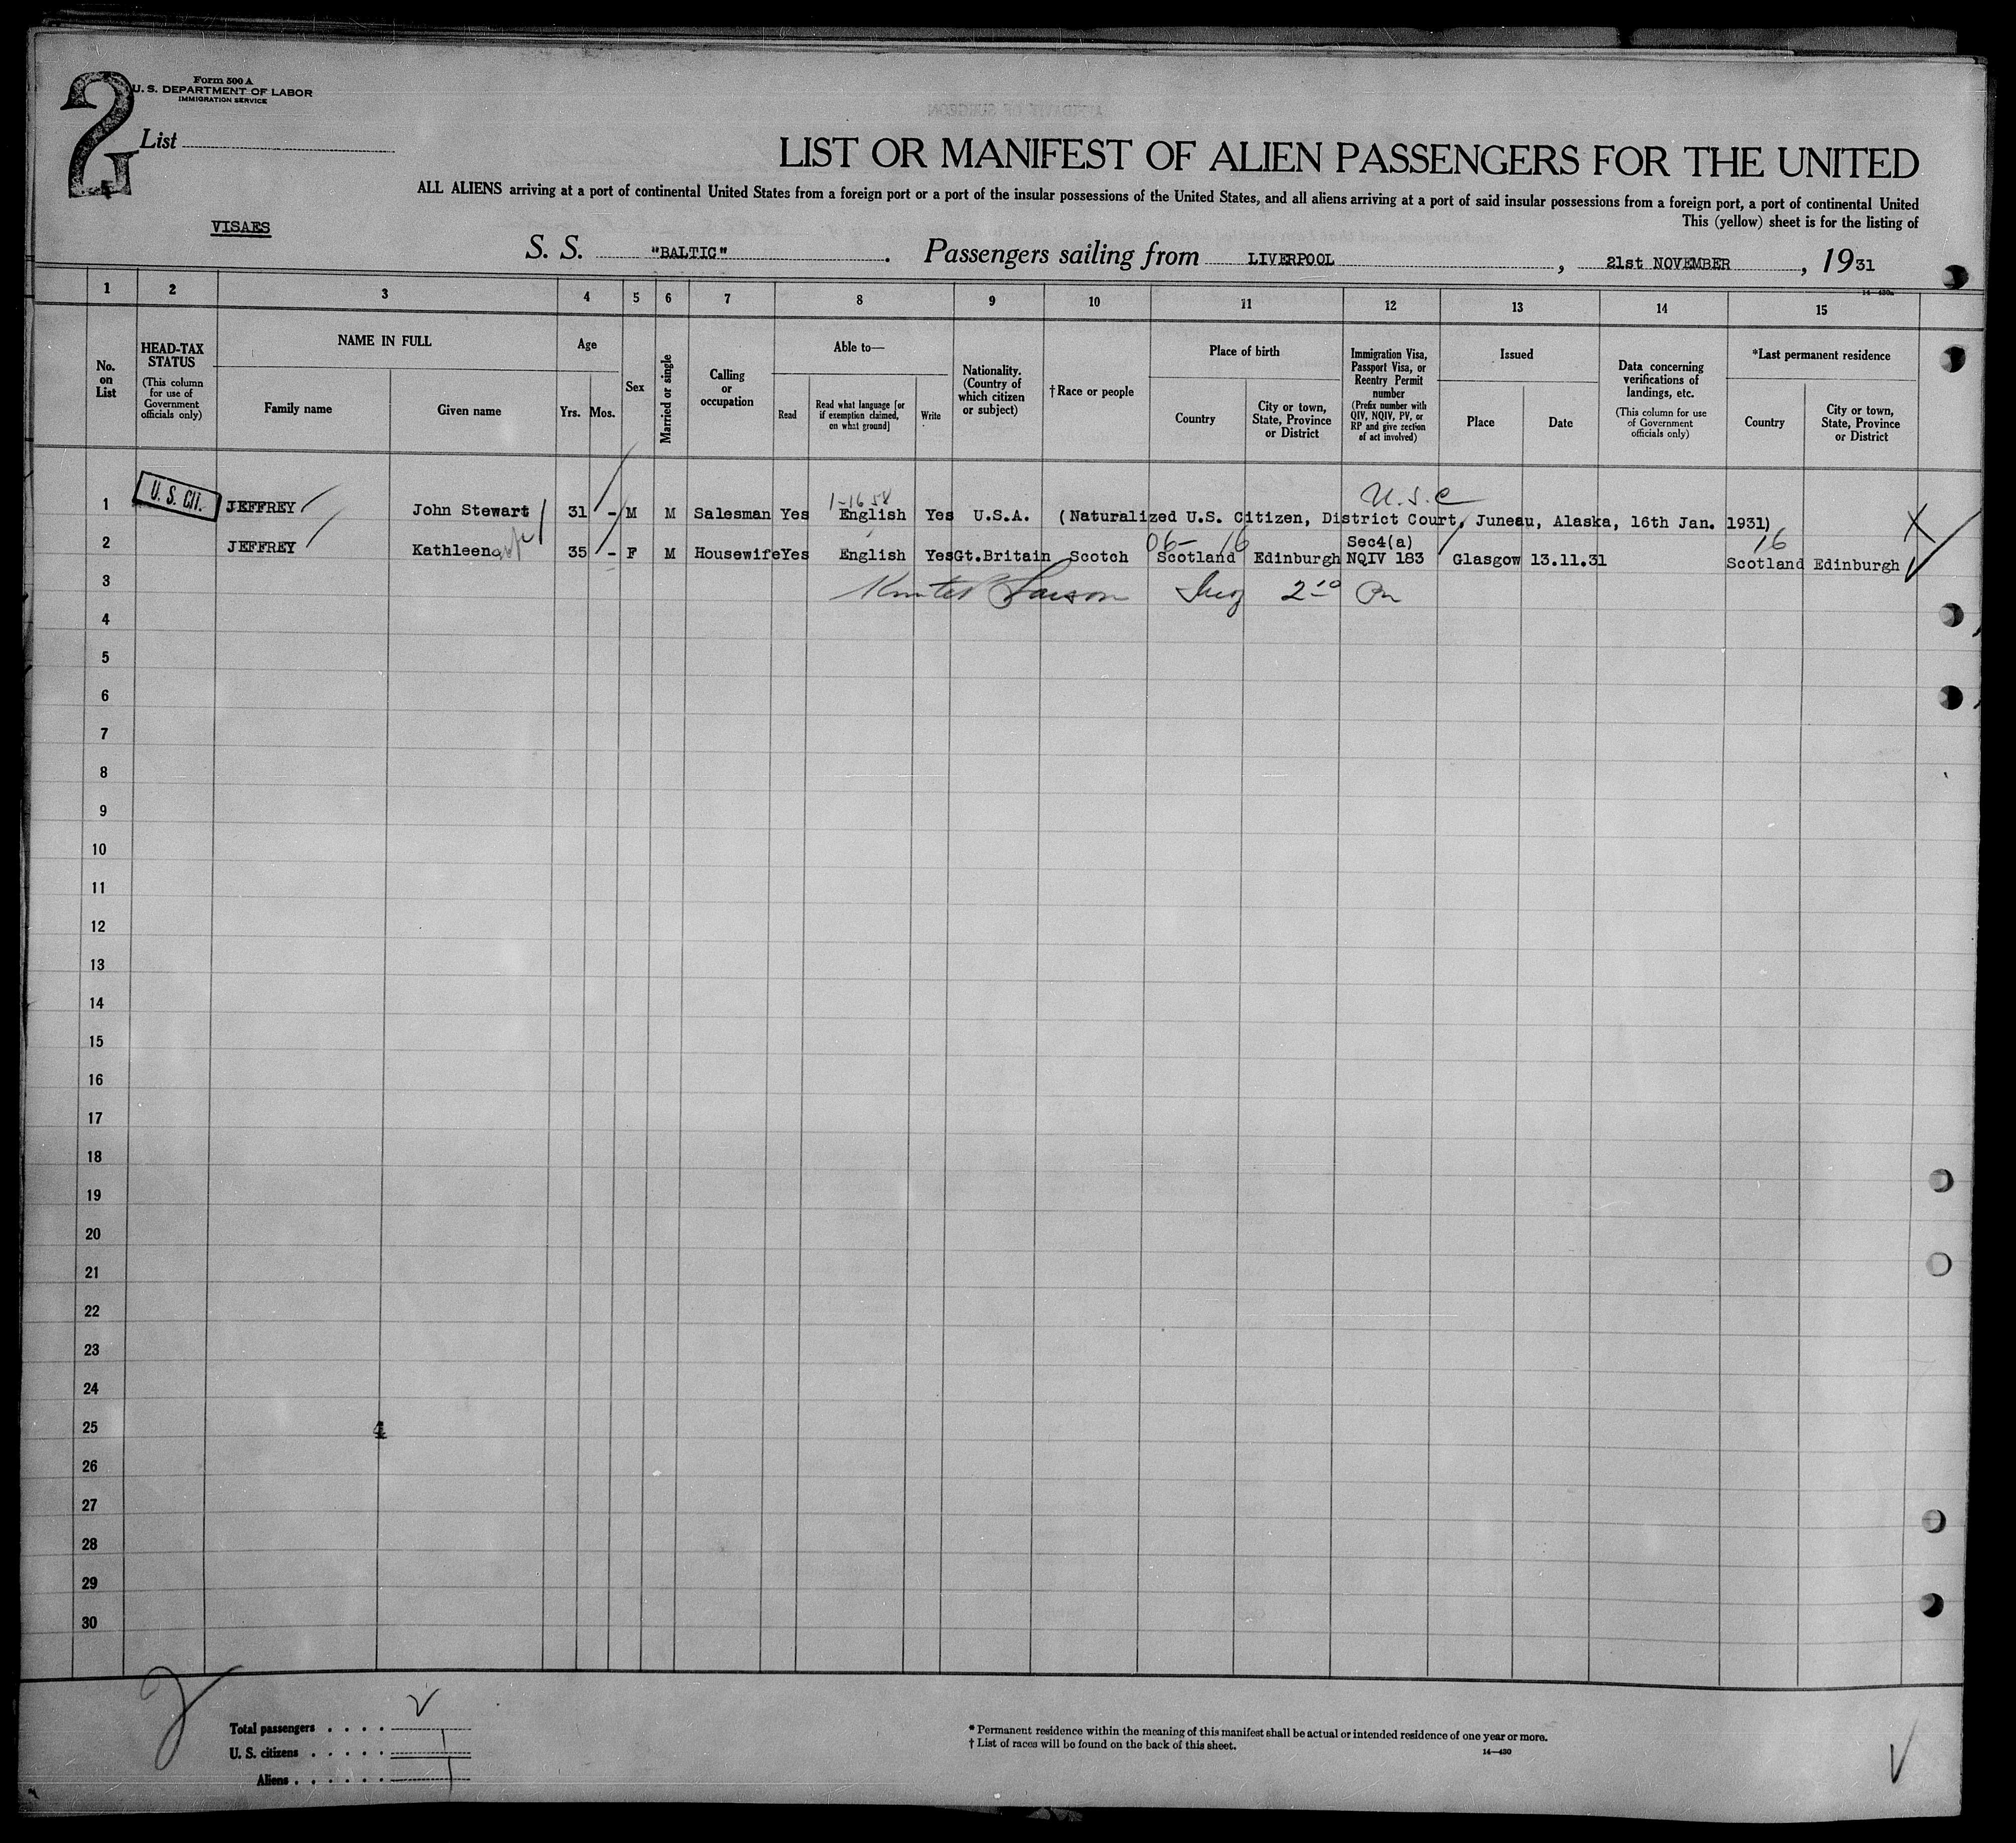 2
Form 500 A
U. S. DEPARTMENT OF LABOR
IMMIGRATION SERVICE
List
LIST OR MANIFEST OF ALIEN PASSENGERS FOR THE UNITED
ALL ALIENS arriving at a port of continental United States from a foreign port or a port of the insular possessions of the United States, and all aliens arriving at a port of said insular possessions from a foreign port, a port of continental United
This (yellow) sheet is for the listing of
VISAES
S. S. "BALTIC". Passengers sailing from LIVERPOOL, 21st NOVEMBER, 1931
14—430a
1 2 3 4 5 6 7 8 9 10 11 12 13 14 15
No. on List
HEAD-TAX STATUS
(This column for use of Government officials only)
NAME IN FULL
Family name
Given name
Age
Yrs. Mos.
Sex
Married or single
Calling or occupation
Able to—
Read
Read what language [or if exemption claimed, on what ground]
Write
Nationality. (Country of which citizen or subject)
†Race or people
Place of birth
Country
City or town, State, Province or District
Immigration Visa, Passport Visa, or Reentry Permit number
(Prefix number with QIV, NQIV, PV, or RP and give section of act involved)
Issued
Place
Date
Data concerning verifications of landings, etc.
(This column for use of Government officials only)
*Last permanent residence
Country
City or town, State, Province or District
1-16 58 U.S.C
1 U. S. CIT. JEFFREY John Stewart 31 - M M Salesman Yes English Yes U.S.A. (Naturalized U.S. Citizen, District Court, Juneau, Alaska, 16th Jan. 1931) X
06- 16 Sec4(a) 16
2 JEFFREY Kathleen 35 - F M Housewife Yes English Yes Gt.Britain Scotch Scotland Edinburgh NQIV 183 Glasgow 13.11.31 Scotland Edinburgh
3
4
5
6
7
8
9
10
11
12
13
14
15
16
17
18
19
20
21
22
23
24
25 4
26
27
28
29
30
Total passengers . . . .
U. S. citizens . . . . . 1
Aliens . . . . . . 1
* Permanent residence within the meaning of this manifest shall be actual or intended residence of one year or more.
† List of races will be found on the back of this sheet.
14—430